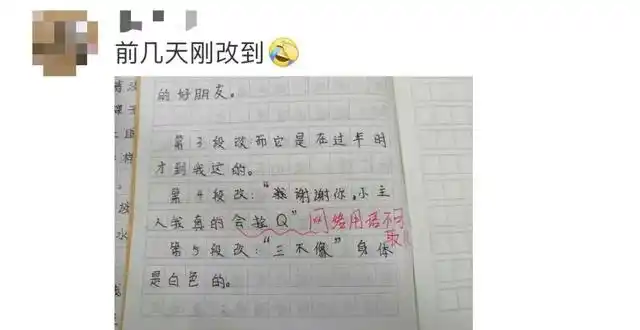 前几天刚改到🤣
的好朋友。
第3段改而它是在过年时
才到我这的。
第4段改:“谢谢你,小主
人我真的会栓Q”网络用语不可
取
第5段改:“三不像”身体
是白色的。
水